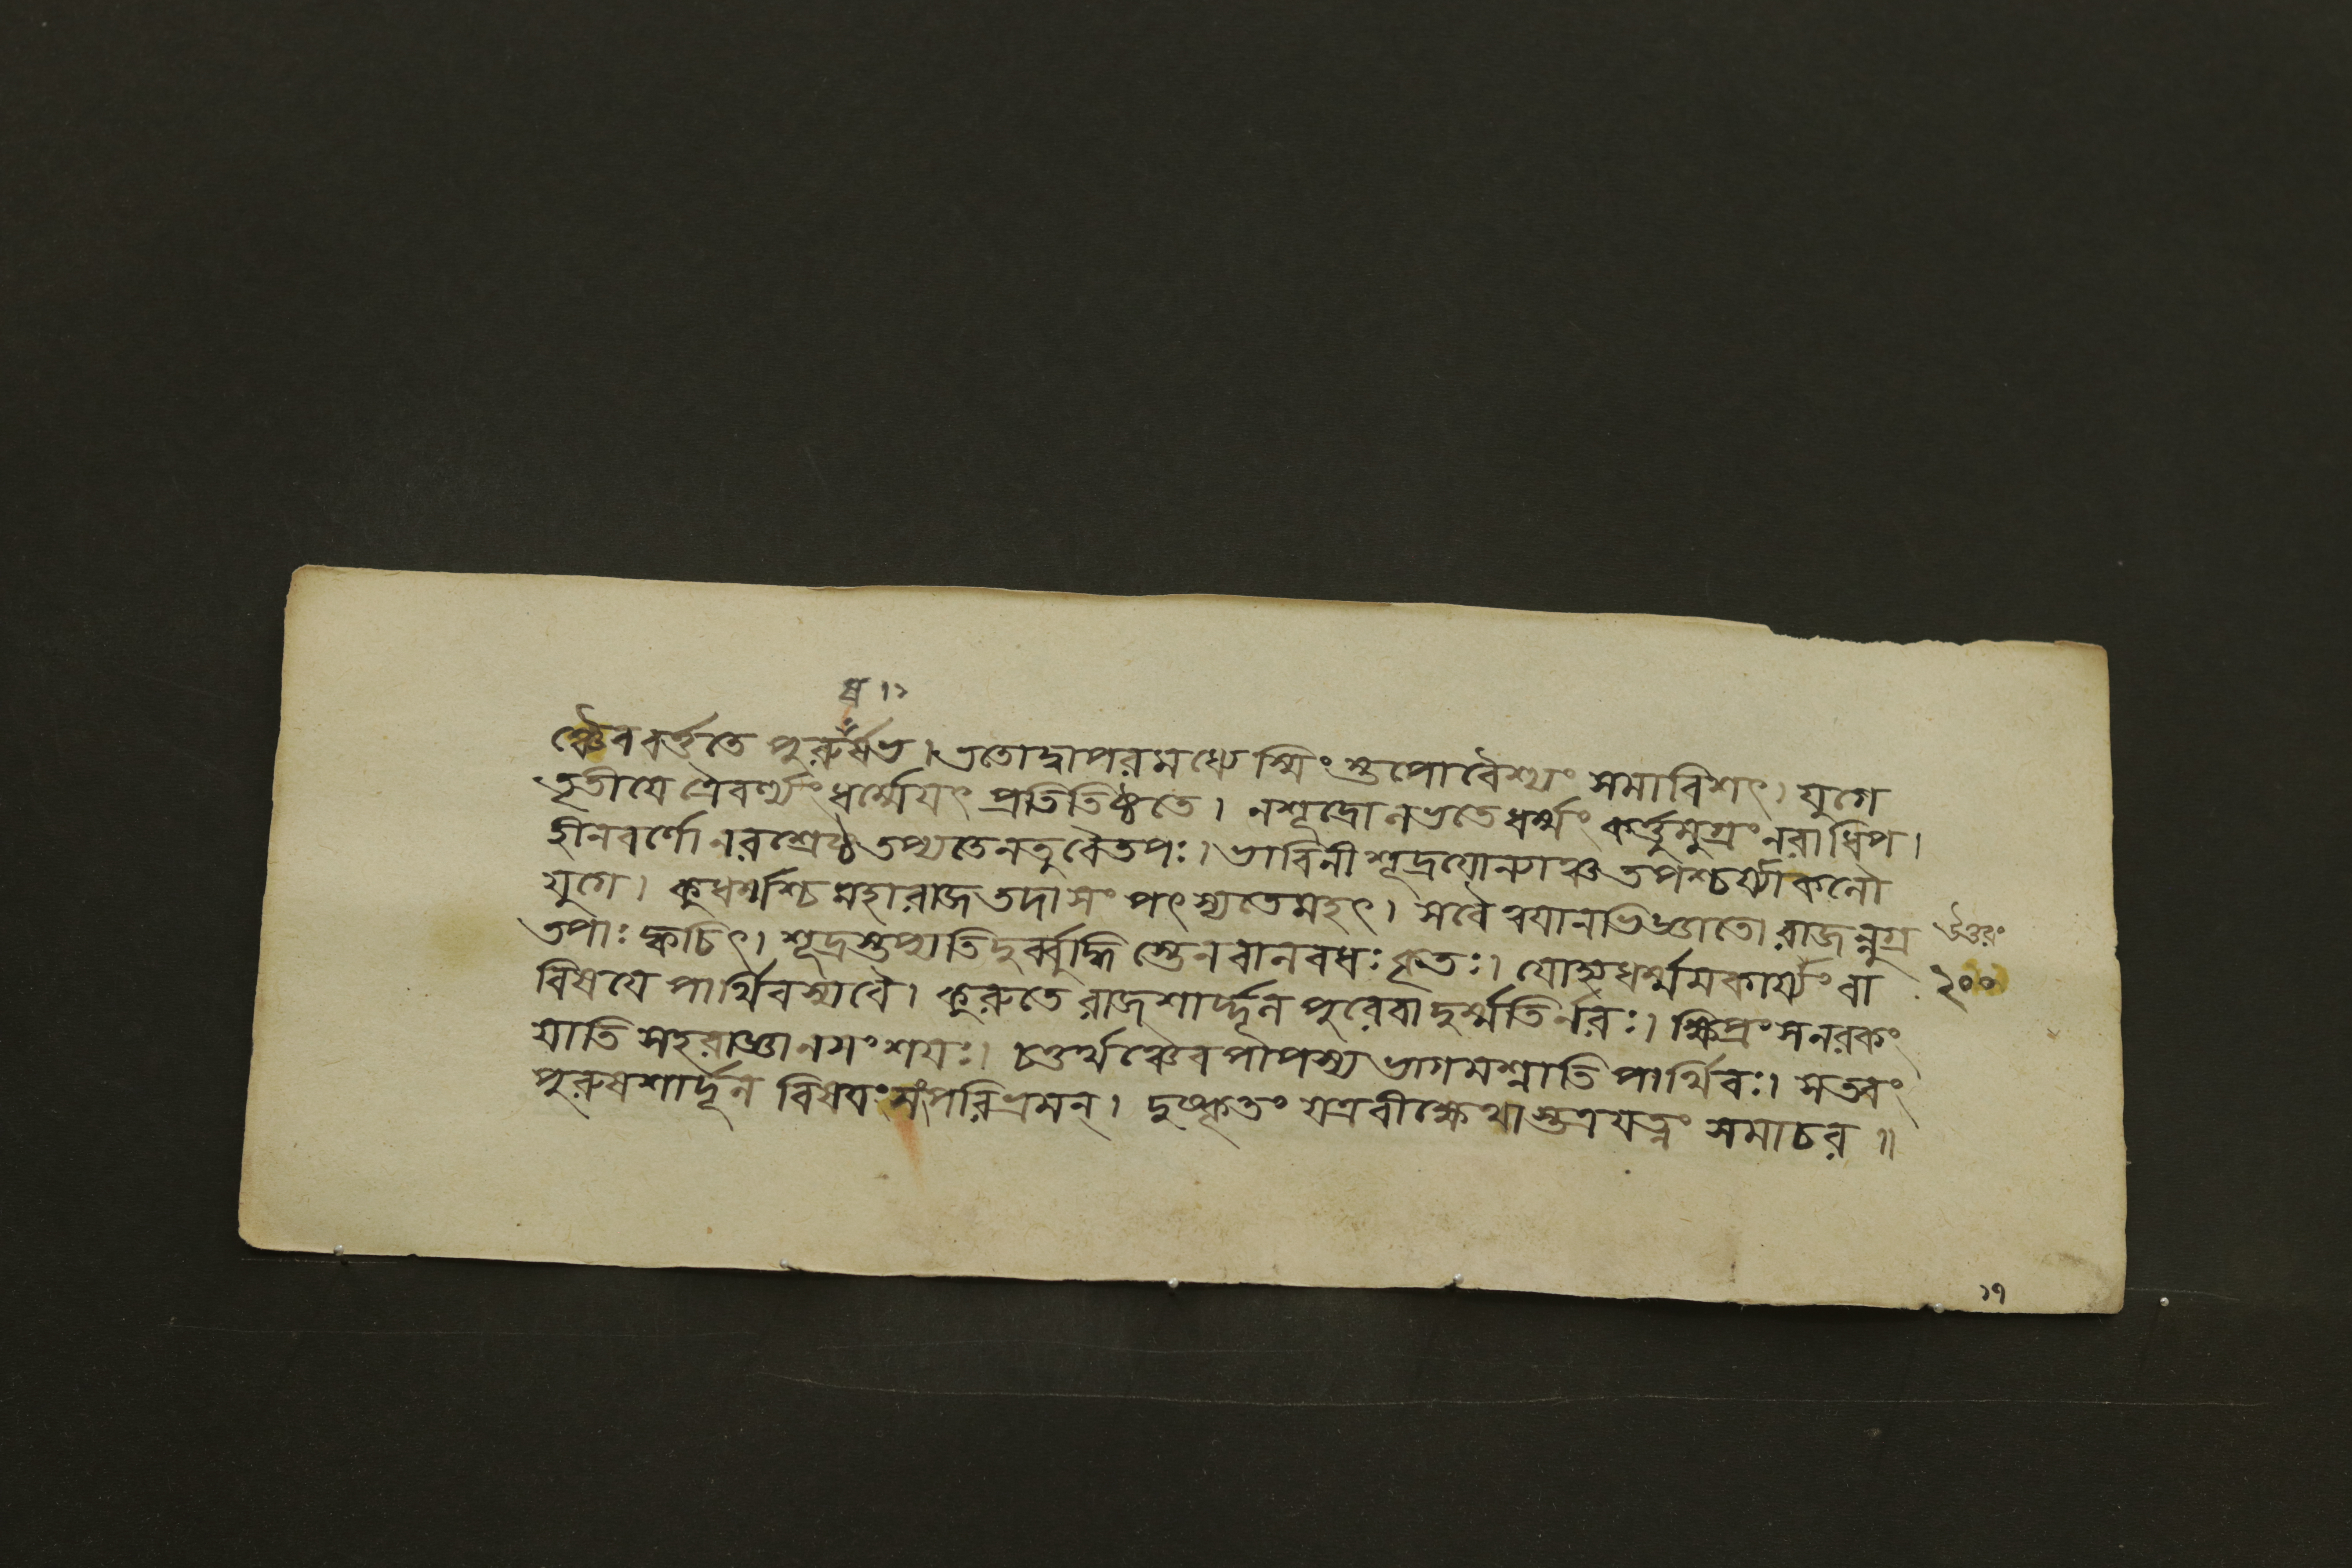 ষ ৷১
ঞ্চৈব বর্ত্ততে পুরুষর্ষভ। ততোদ্বাপরমধ্যেস্মিংস্তপোবৈশ্যং সমাবিশৎ। যুগে
তৃতীয়ে ত্রৈবর্ণ্যং ধর্ম্মেযৎ প্রতিতিষ্ঠতে। নশূদ্রোলভতেধর্ম্মং কর্ত্তুমুগ্রং নরাধিপ।
হীনবর্ণোনরশ্রেষ্ঠতপ্যতেনতুবৈতপঃ। ভাবিনীশূদ্রযোন্যাঞ্চতপশ্চর্য্যাকলৌ
যুগে। কুধর্ম্মশ্চমহারাজতদাসংপৎস্যতেমহৎ। সবৈবযানভিজ্ঞাতো রাজন্নুগ্র
তপাঃ ক্বচিৎ। শূদ্রস্তপ্যতিদুর্ব্বুদ্ধিস্তেনবালবধঃ কৃতঃ। যোহ্যধর্ম্মমকার্য্যংবা
উত্তরং
২০০
বিষয়ে পার্থিবস্যবৈ। কুরুতে রাজশার্দ্দূলপুরেবাদুর্ম্মতির্নরঃ। ক্ষিপ্রংসনরকং
যাতি সহরাজ্ঞানসংশয়ঃ। চতুর্থঞ্চৈবপাপস্যভাগমশ্নাতিপার্থিবঃ। সতবং
পুরুষশার্দূল বিষয়ং সংপরিভ্রমন্। দুষ্কৃতং যত্রবীক্ষেথাস্তত্রযত্নং সমাচর॥
১৭